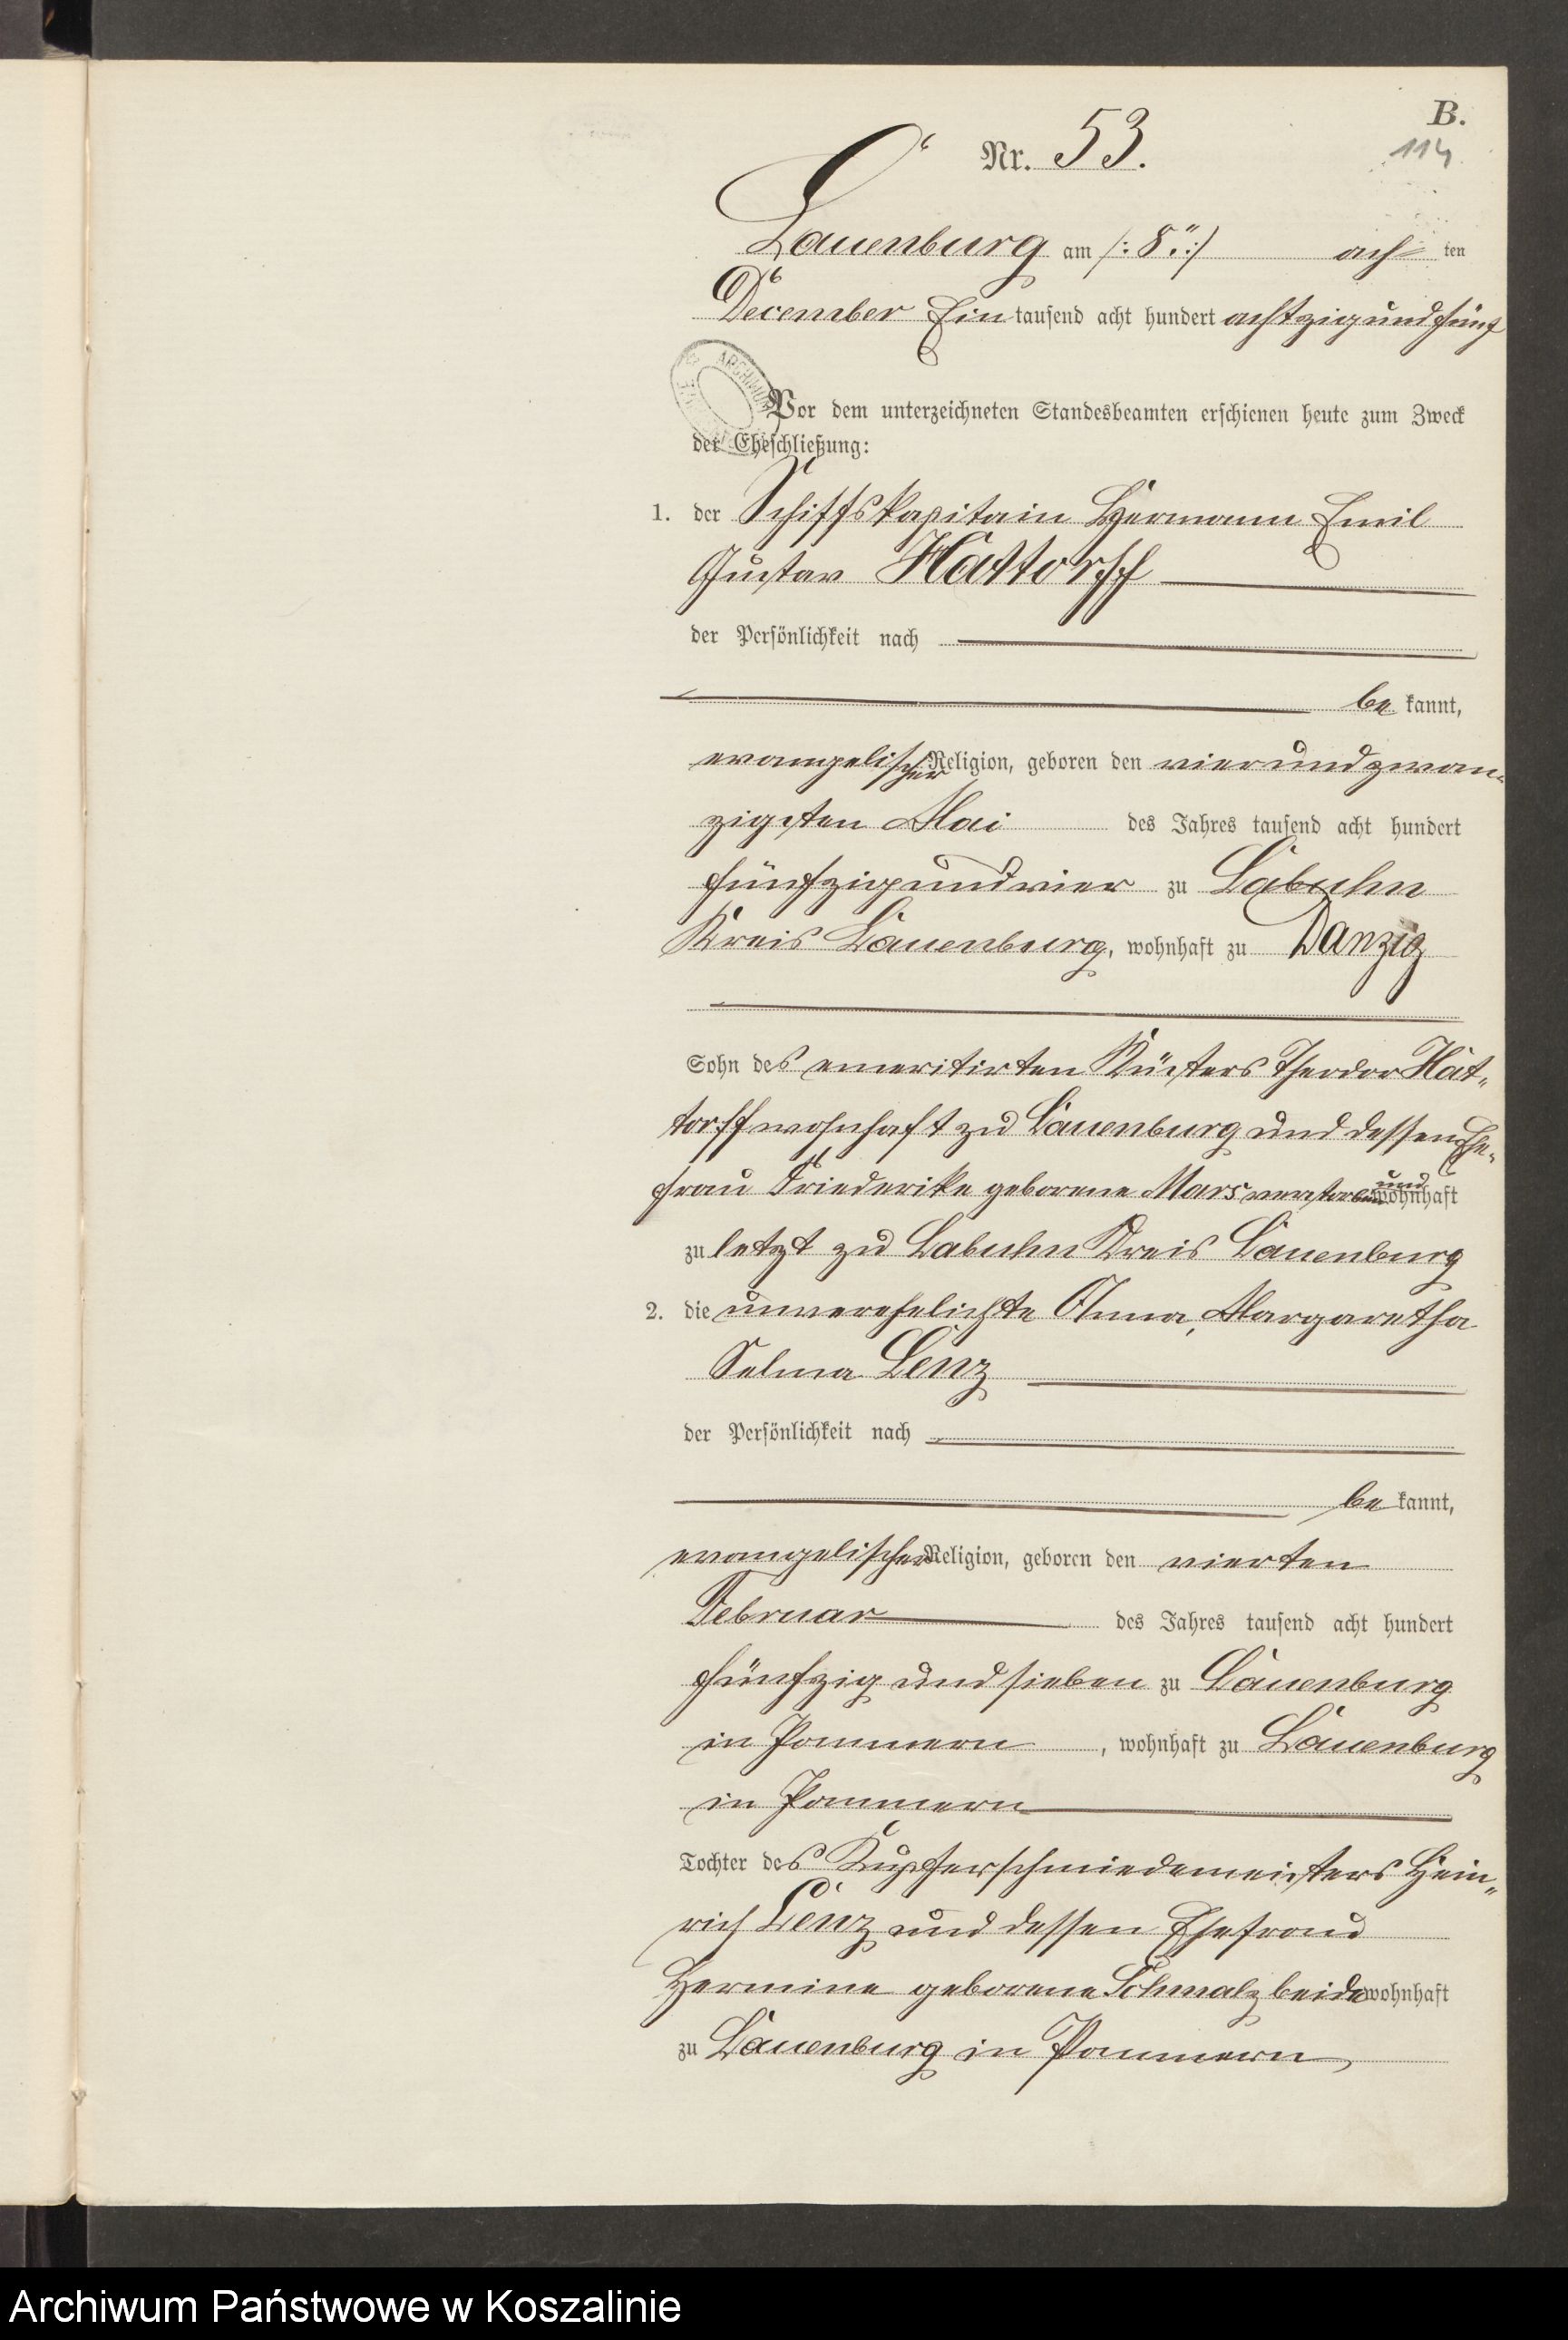 B.
Nr. 53.
114
Lauenburg am /: 8ten :/ ach ten
December Ein tausend acht hundert achtzig und fünf
Vor dem unterzeichneten Standesbeamten erschienen heute zum Zweck
der Eheschließung:
1. der Schiffskapitain Hermann Emil
Gustav Hattorff
der Persönlichkeit nach
be kannt,
evangelischer Religion, geboren den vierundzwan-
zigsten Mai des Jahres tausend acht hundert
fünfzig und vier zu Labuhn
Kreis Lauenburg, wohnhaft zu Danzig
Sohn des emeritirten Küsters Theodor Hat-
torff wohnhaft zu Lauenburg und dessen Ehe-
frau Friederike geborene Mars verstorben und wohnhaft
zu letzt zu Labuhn Kreis Lauenburg
2. die unverehelichte Anna, Margaretha
Selma Lenz
der Persönlichkeit nach
be kannt,
evangelischer Religion, geboren den vierten
Februar des Jahres tausend acht hundert
fünfzig und sieben zu Lauenburg
in Pommern, wohnhaft zu Lauenburg
in Pommern
Tochter des Kupferschmiedemeisters Hein-
rich Lenz und dessen Ehefrau
Hermine geborene Schmalz beide wohnhaft
zu Lauenburg in Pommern,
Archiwum Państwowe w Koszalinie